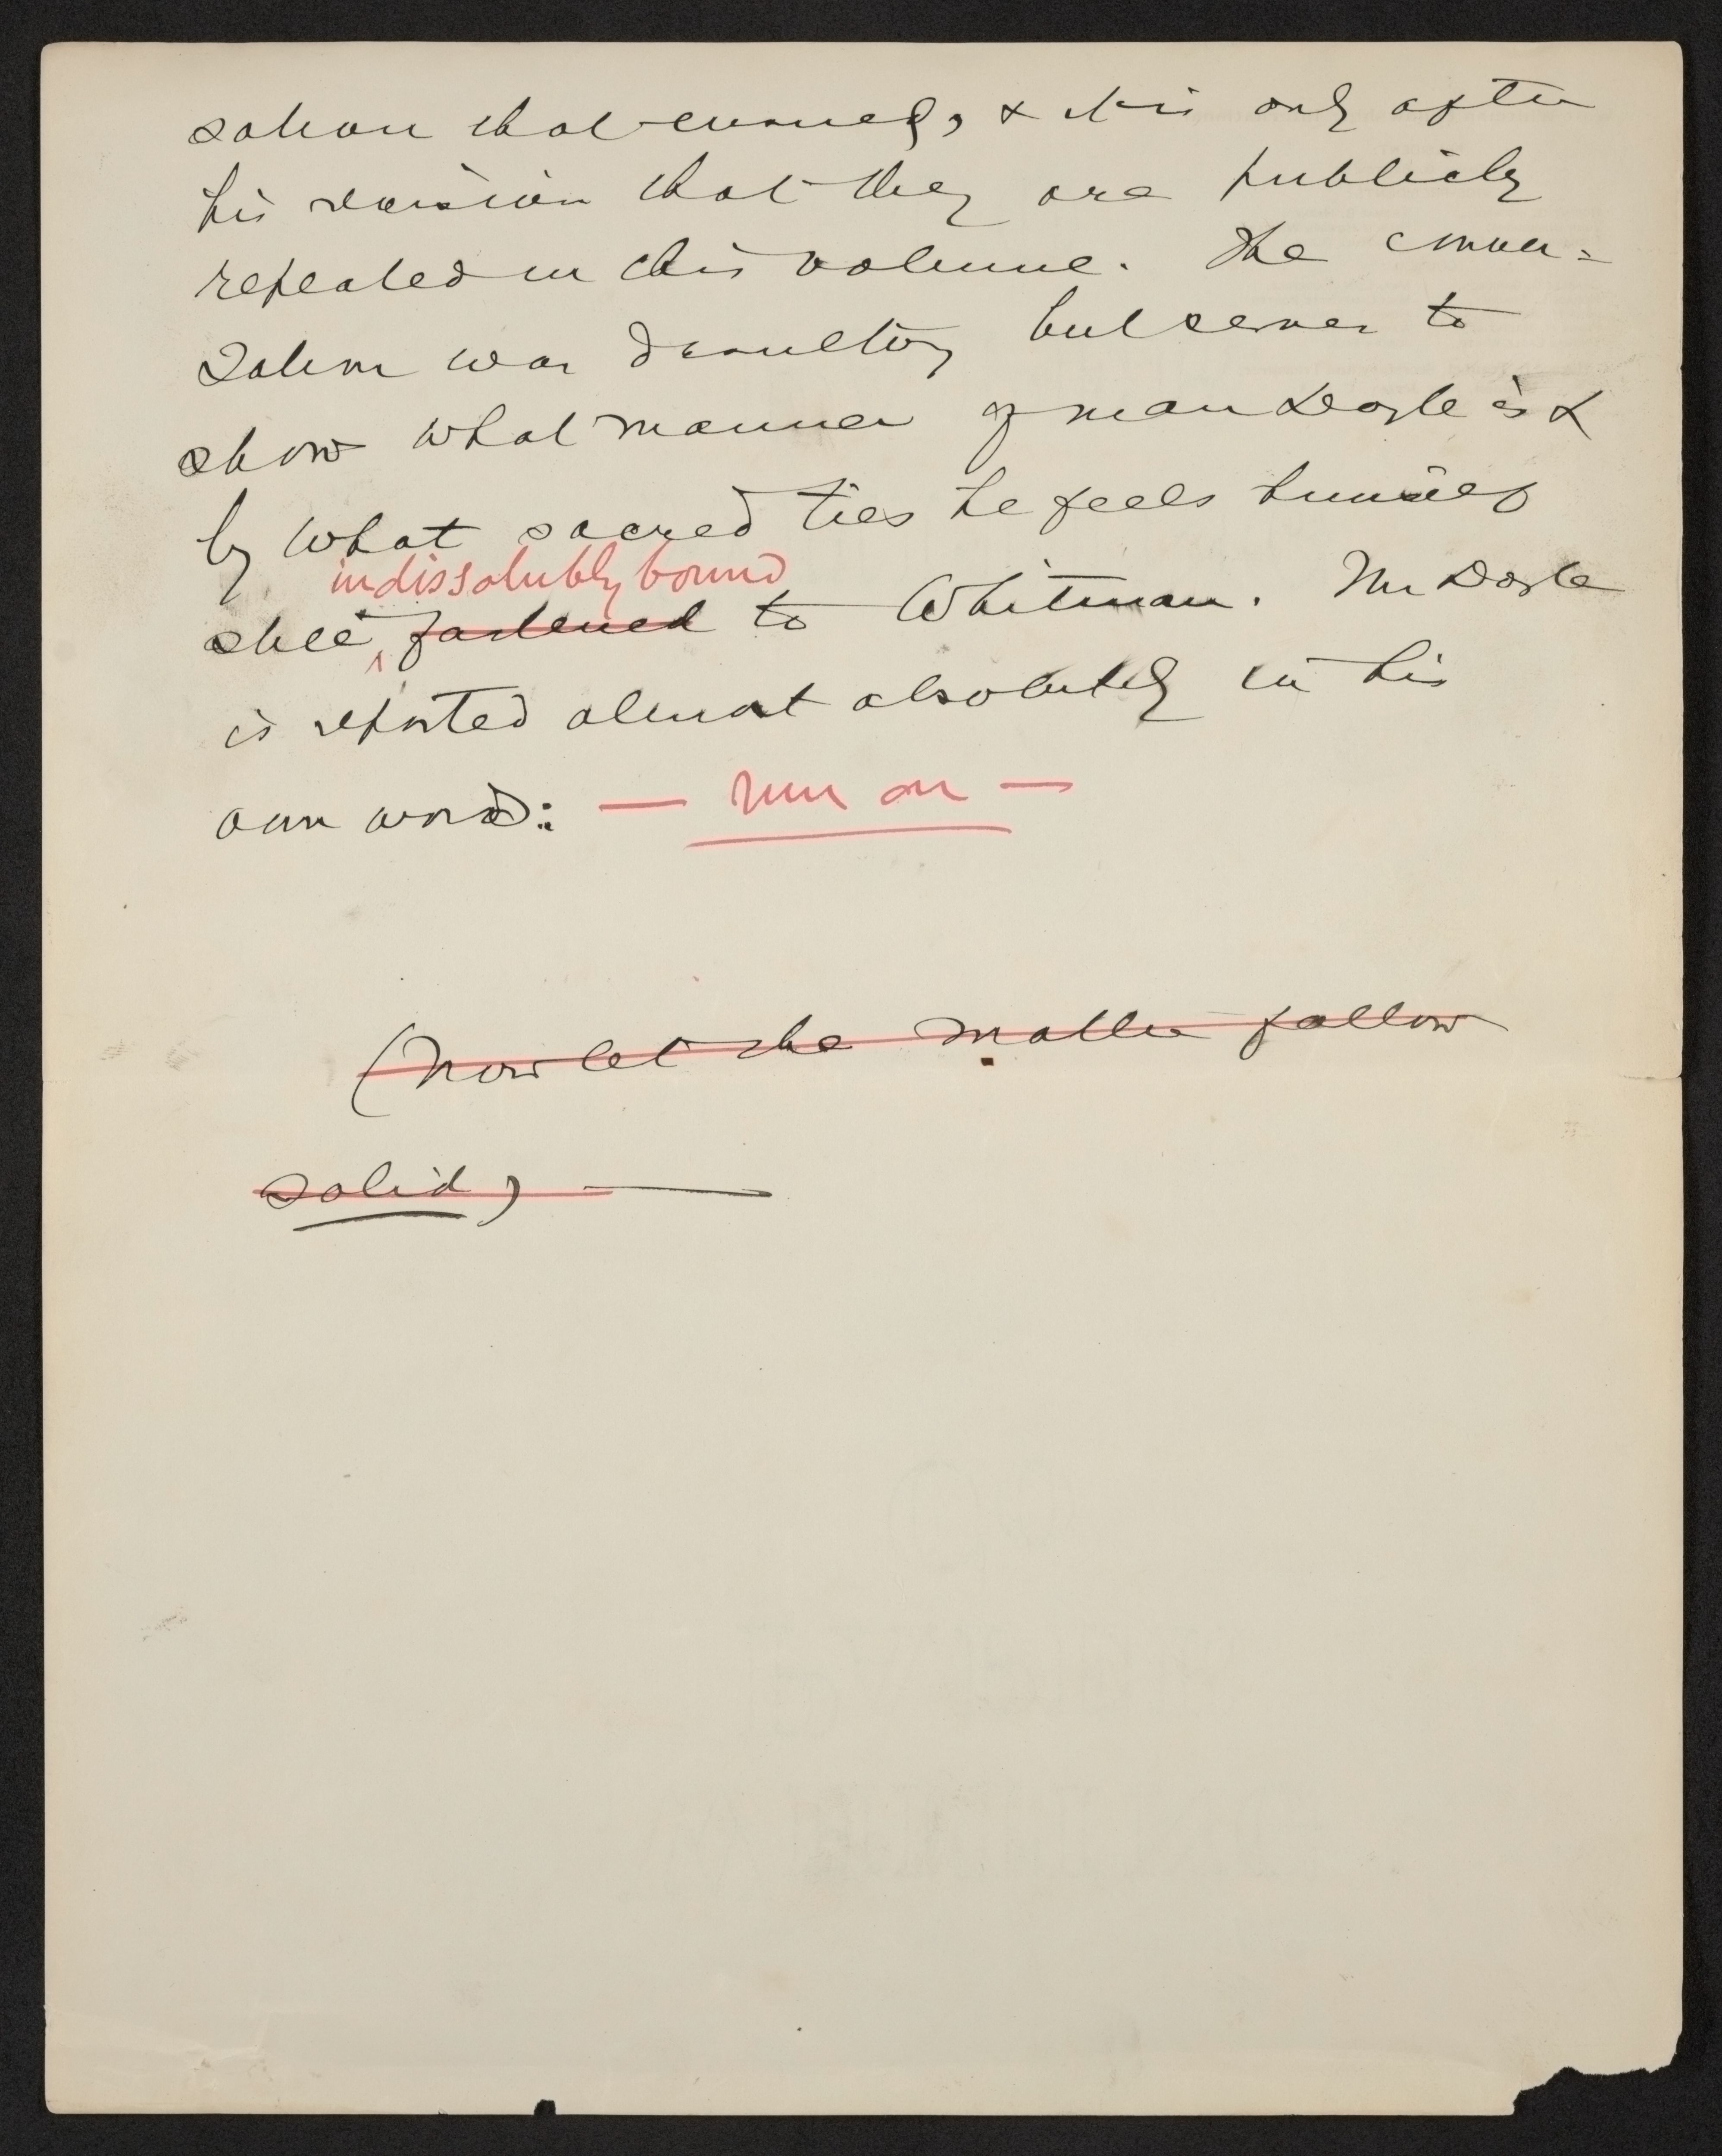 sation that ensued, & it is only after
his revision that they are publicly
repeated in this volume. The conver=
sation was desultory but serves to
show what manner of man Doyle is &
by what sacred ties he feels himself
indissolubly bound
still fastened to Whitman. Mr Doyle
is reported almost absolutely in his
own words: — run on —
(Now let the matter follow
solid) —